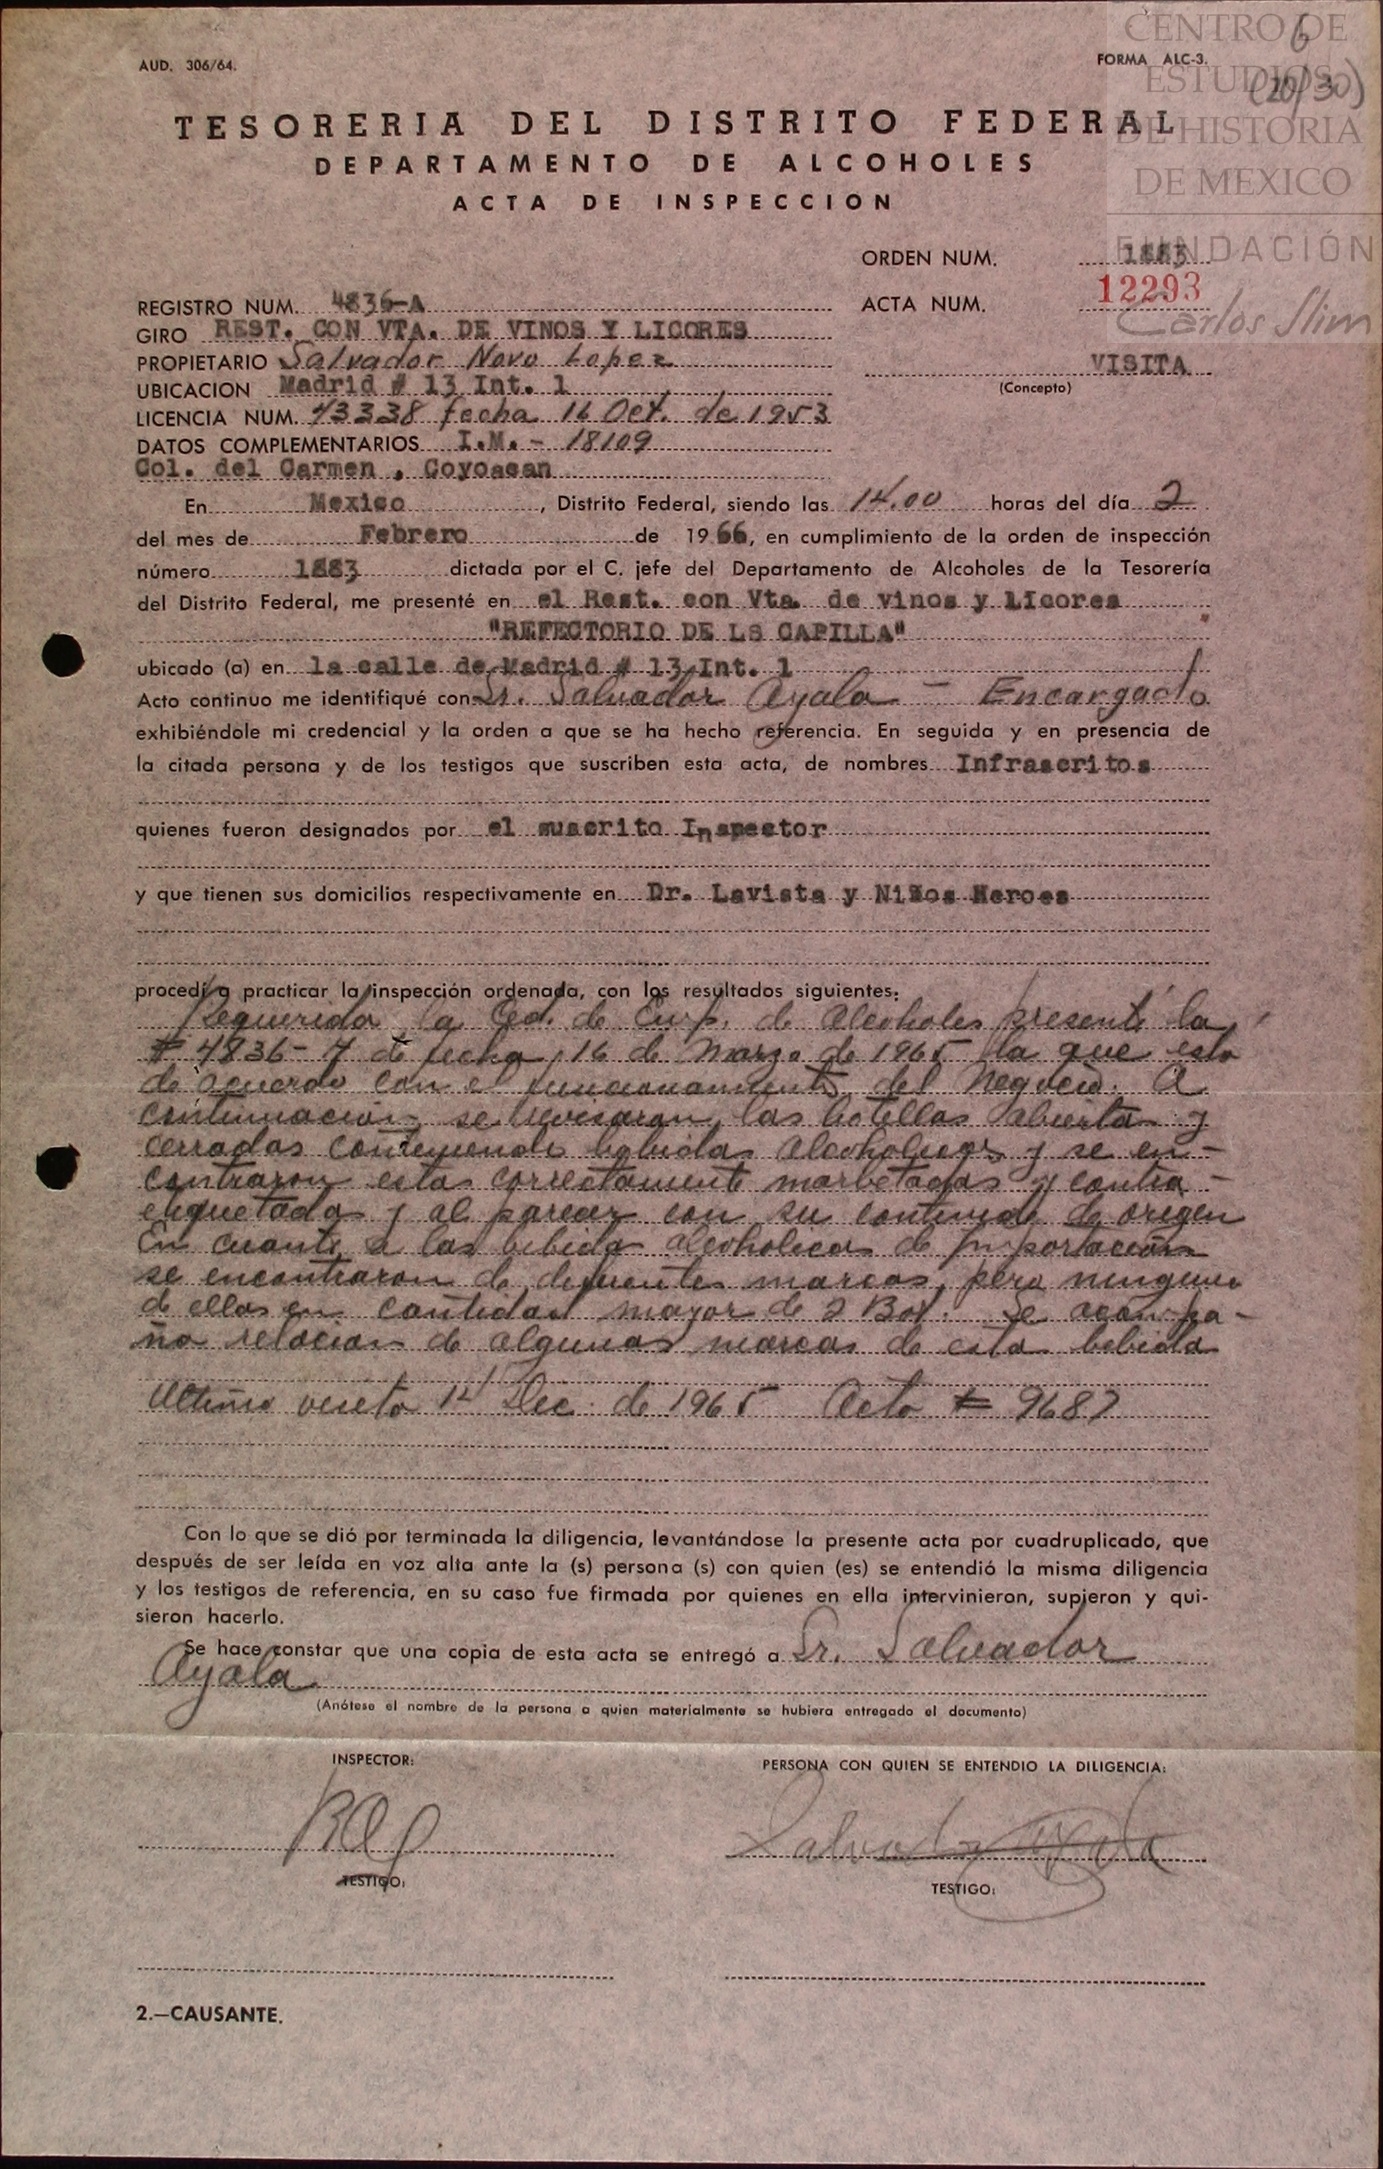 CENTRO DE
ESTUDIOS
DE HISTORIA
DE MEXICO
FUNDACIÓN
Carlos Slim
6
(20/30)
AUD. 306/64.
FORMA ALC-3.
TESORERIA DEL DISTRITO FEDERAL
DEPARTAMENTO DE ALCOHOLES
ACTA DE INSPECCION
ORDEN NUM. 1883
REGISTRO NUM. 4836-A
ACTA NUM. 12293
GIRO REST. CON VTA. DE VINOS Y LICORES
PROPIETARIO Salvador Novo Lopez
VISITA
(Concepto)
UBICACION Madrid # 13 Int. 1
LICENCIA NUM. 43338 fecha 16 Oct. de 1953
DATOS COMPLEMENTARIOS I.M.- 18109
Col. del Carmen , Coyoacan
En Mexico , Distrito Federal, siendo las 14.00 horas del día 2
del mes de Febrero de 1966, en cumplimiento de la orden de inspección
número 1883 dictada por el C. jefe del Departamento de Alcoholes de la Tesorería
del Distrito Federal, me presenté en el Rest. con Vta. de vinos y LIcores
"REFECTORIO DE LS CAPILLA"
ubicado (a) en la calle de Madrid # 13 Int. 1
Acto continuo me identifiqué con Sr. Salvador Ayala - Encargado
exhibiéndole mi credencial y la orden a que se ha hecho referencia. En seguida y en presencia de
la citada persona y de los testigos que suscriben esta acta, de nombres Infrascritos
quienes fueron designados por el suscrito Inspector
y que tienen sus domicilios respectivamente en Dr. Lavista y Niños Heroes
procedí a practicar la inspección ordenada, con los resultados siguientes:
Requerida la Ced. de Emp. de Alcoholes presentó la
# 4836-7 de fecha 16 de Marzo de 1965 la que esta
de acuerdo con el funcionamiento del Negocio. A
continuación se revisaron las botellas abiertas y
cerradas conteniendo bebidas alcoholicas y se en-
contraron estas correctamente marbetadas y contra-
etiquetadas y al parecer con su contenido de origen
En cuanto a las bebidas alcoholicas de importación
se encontraron de diferentes marcas, pero ninguna
de ellas en cantidad mayor de 2 Bot. Se acompa-
ña relacion de algunas marcas de esta bebida
Ultima visita 14 Dic. de 1965 Acta # 9687
Con lo que se dió por terminada la diligencia, levantándose la presente acta por cuadruplicado, que
después de ser leída en voz alta ante la (s) persona (s) con quien (es) se entendió la misma diligencia
y los testigos de referencia, en su caso fue firmada por quienes en ella intervinieron, supieron y qui-
sieron hacerlo.
Se hace constar que una copia de esta acta se entregó a Sr. Salvador
Ayala
(Anótese el nombre de la persona a quien materialmente se hubiera entregado el documento)
INSPECTOR:
PERSONA CON QUIEN SE ENTENDIO LA DILIGENCIA:
Salvador Ayala
TESTIGO:
TESTIGO:
2.—CAUSANTE.